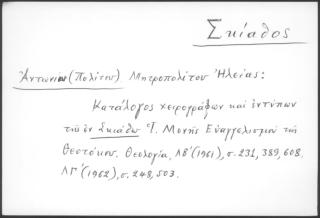 Σκίαθος
Ἀντωνίου (Πολίτου) Μητροπολίτου Ἠλείας:
Κατάλογος χειρογράφων καὶ ἐντύπων
τῆς ἐν Σκιάθῳ Ἱ. Μονῆς Εὐαγγελισμοῦ τῆς
Θεοτόκου. Θεολογία, ΛΒ' (1961), σ. 231, 389, 608.
ΛΓ' (1962), σ. 248, 503.